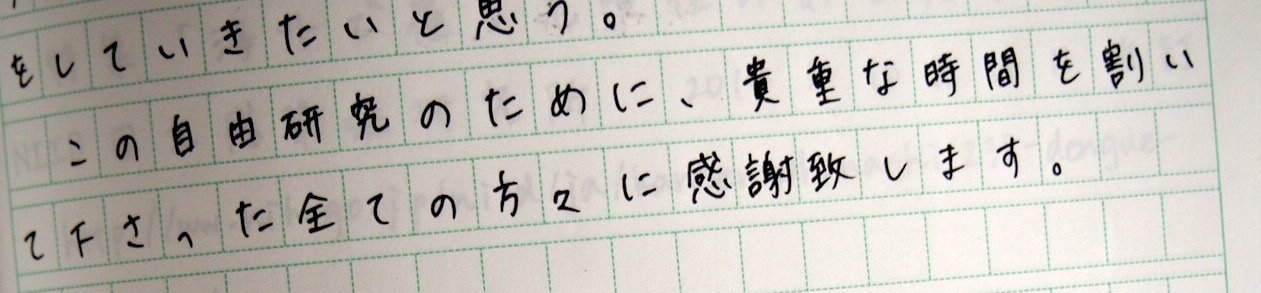 をしていきたいと思う。
この自由研究のために、貴重な時間を割い
て下さった全ての方々に感謝致します。